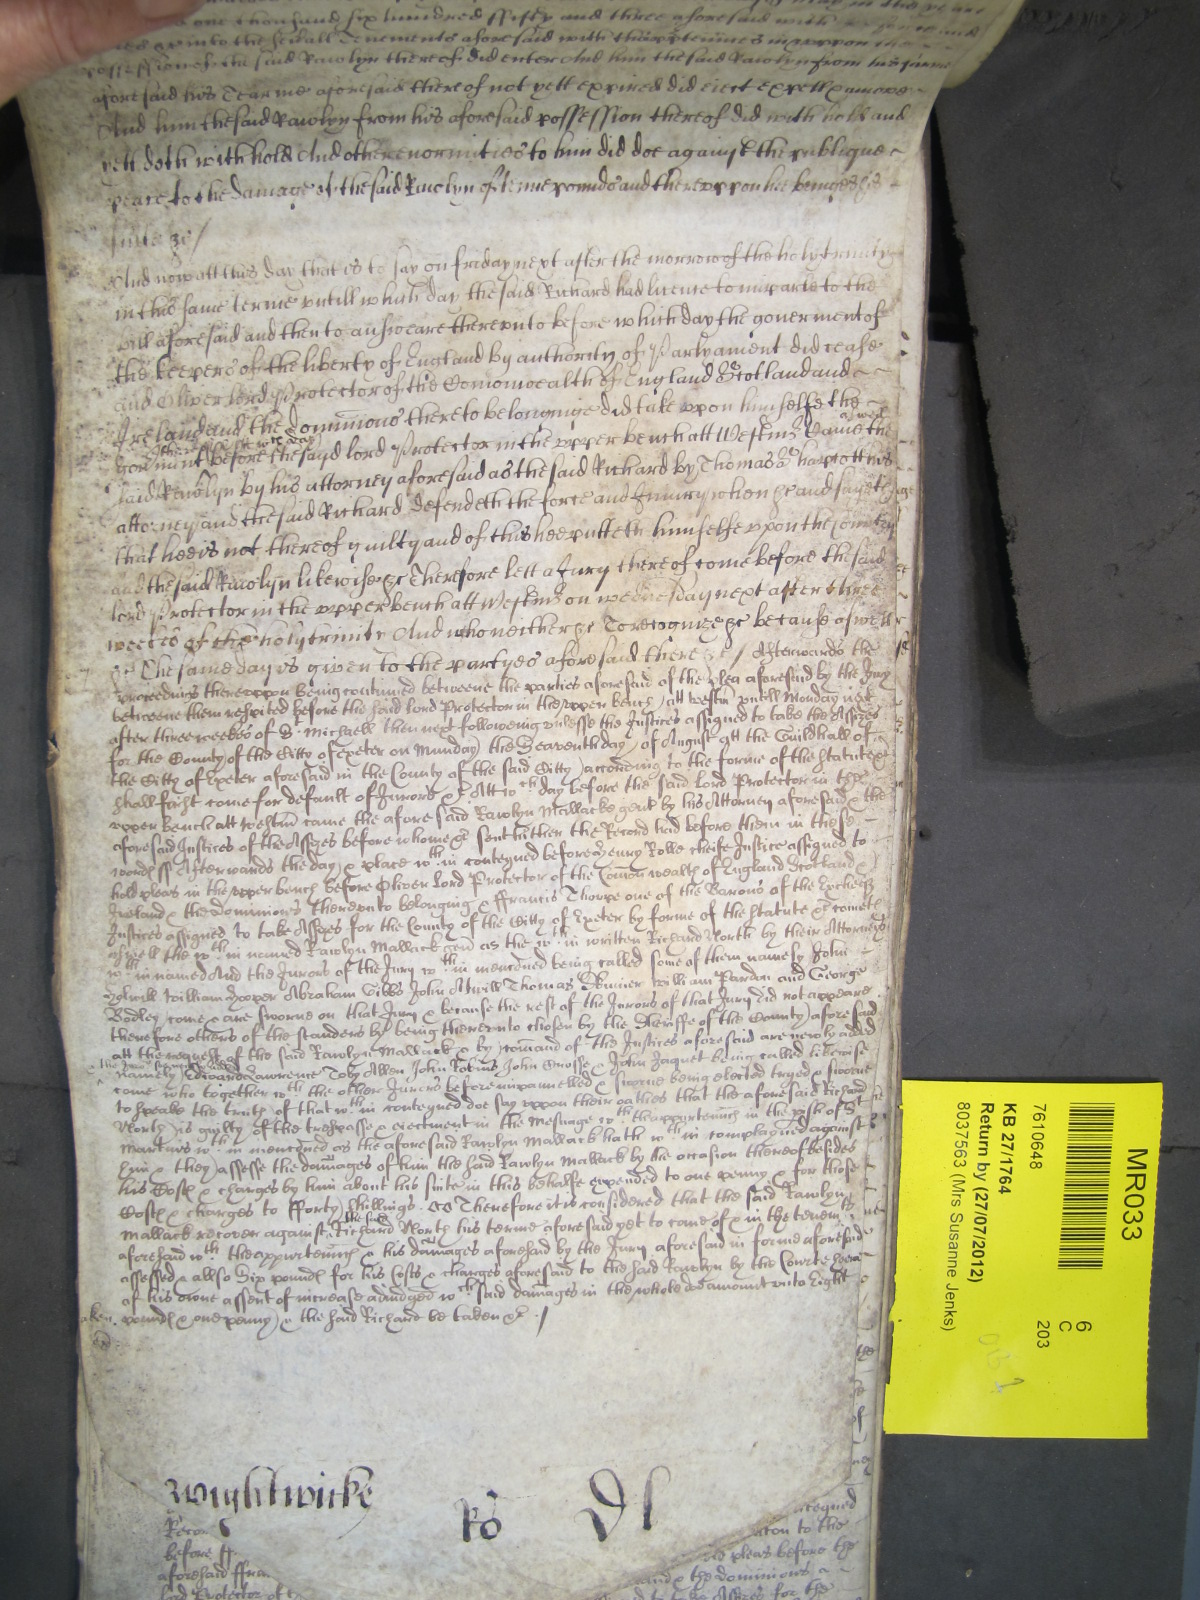 one thousand six hundred ffifty and three aforesaid with
into the sevall Tenements aforesaid with thappurtenñces in & uppon the
possession of the said Rawlyn thereof did enter And him the said Rawlyn from his farme
aforesaid his Tearme aforesaid thereof not yett expired did eiect expell & amove
And him the said Rawlyn from his aforesaid possession thereof did with hold and
yett doth with hold And other enormities to him did doe against the publique
peace to the damage of the said Rawlyn of tenne pounds and thereuppon he bringes his
suite &c /
And now att this day that is to say on friday next after the morrow of the holy trinity
in this same terme untill which day the said Richard had licence to imparle to the
bill aforesaid and then to answeare thereunto before which day the goverment of
the keepers of the liberty of England by authority of Parlyament did cease
and Oliver Lord Protector of the Comonwealth of England Scotland and
Ireland and the dominions thereto belonginge did take upon himselfe the
goverment before the sayd lord Protector in the upper bench att Westmr Came as well the
said Rawlyn by his attorney aforesaid as the said Richard by Thomas Southcott his
attorney and the said Richard defendeth the force and Iniury when &c and sayeth
that hee is not thereof guilty and of this hee putteth himselfe uppon the Country
and the said Rawlyn likewise &c Therefore lett a Jury thereof come before the said
lord Protector in the upper bench att Westmr on wednesday next after three
weekes of the holy trinity And who neither &c To recognize &c because aswell
&c The same day is given to the partyes aforesaid there &c / Afterwards the
proceedings thereuppon being continued betweene the parties aforesaid of the plea aforesaid by the Jury
betweene them respited before the said lord Protector in the upper bench att westm̃ untill Monday next
after three weekes of St. Michaell then next following unlesse the Justices assigned to take the Assizes
for the County of the Citty of exeter on Munday the Seaventh day of August att the Guildhall of
the Citty of Exeter aforesaid in the County of the said Citty according to the forme of the statute &c
shall first come for default of Jurors &c Att wch day before the said Lord Protector in the
upper bench att westm̃ came the aforesaid Rawlyn Mallacke gent by his Attorney aforesaid & the
aforesaid Justices of the Assizes before whome &c sent hither the Record had before them in these
words ss Afterwards the day & place wthin conteyned before Henry Rolle cheife Justice assigned to
hold pleas in the upper bench before Oliver Lord Protector of the Comon wealth of England Scotland &
Ireland & the dominions thereunto belonging & ffrancis Thorpe one of the Barons of the Exchequer
Justices assigned to take Assizes for the County of the Citty of Exeter by forme of the statute &c cometh
aswell the wthin named Rawlyn Mallack gent as the wthin written Richard North by their Attorneys
wthin named And the Jurors of the Jury wthin menc̃oned being called some of them namely John
Holwill William Hooper Abraham Gibbs John Atwill Thomas Skinner William Pardon and George
Bodley come & are sworne on that Jury & because the rest of the Jurors of that Jury did not appeare
therefore others of the standers by being thereunto chosen by the Sheriffe of the County aforesaid
att the request of the said Rawlyn Mallack & by comand of the Justices aforesaid are newly added
namely Edward Lawrence Toby Allen John Robins John Crosse & John Jaquet being called likewise
come who together wth the other Jurors before impannelled & sworne being elected tryed & sworne
to speake the truth of that wthin conteyned doe say uppon their oathes that the aforesaid Richard
North is guilty of the trespasse & eiectment in the Mesuage wth thappurtenñces in the pish of St
Martins wthin menc̃oned as the aforesaid Rawlyn Mallack hath wthin complayned against
him & they assesse the damages of him the said Rawlyn Mallack by the occasion thereof besides
his Costs & charges by him about his suite in this behalfe expended to one penny & for those
Costs & charges to fforty shillings Therefore it is considered that the said Rawlyn
Mallack recover against the said Richard North his terme aforesaid yet to come of & in the tenemts
aforesaid wth the appurtenñces & his damages aforesaid by the Jury aforesaid in forme aforesaid
assessed & allso Six pounds for his Costs & charges aforesaid to the said Rawlyn by the Courte here
of his owne assent of increase adiudged wch said damages in the whole do amount unto Eight
pounds & one penny & the said Richard be taken &c /
Wightwicke Ro Dl
before
aforesaid ffran
pleas before the
and & the dominions
to take Assizes for the
MR033
7610648
6
C
203
KB 27/1764
Return by (27/07/2012)
8037563 (Mrs Susanne Jenks)